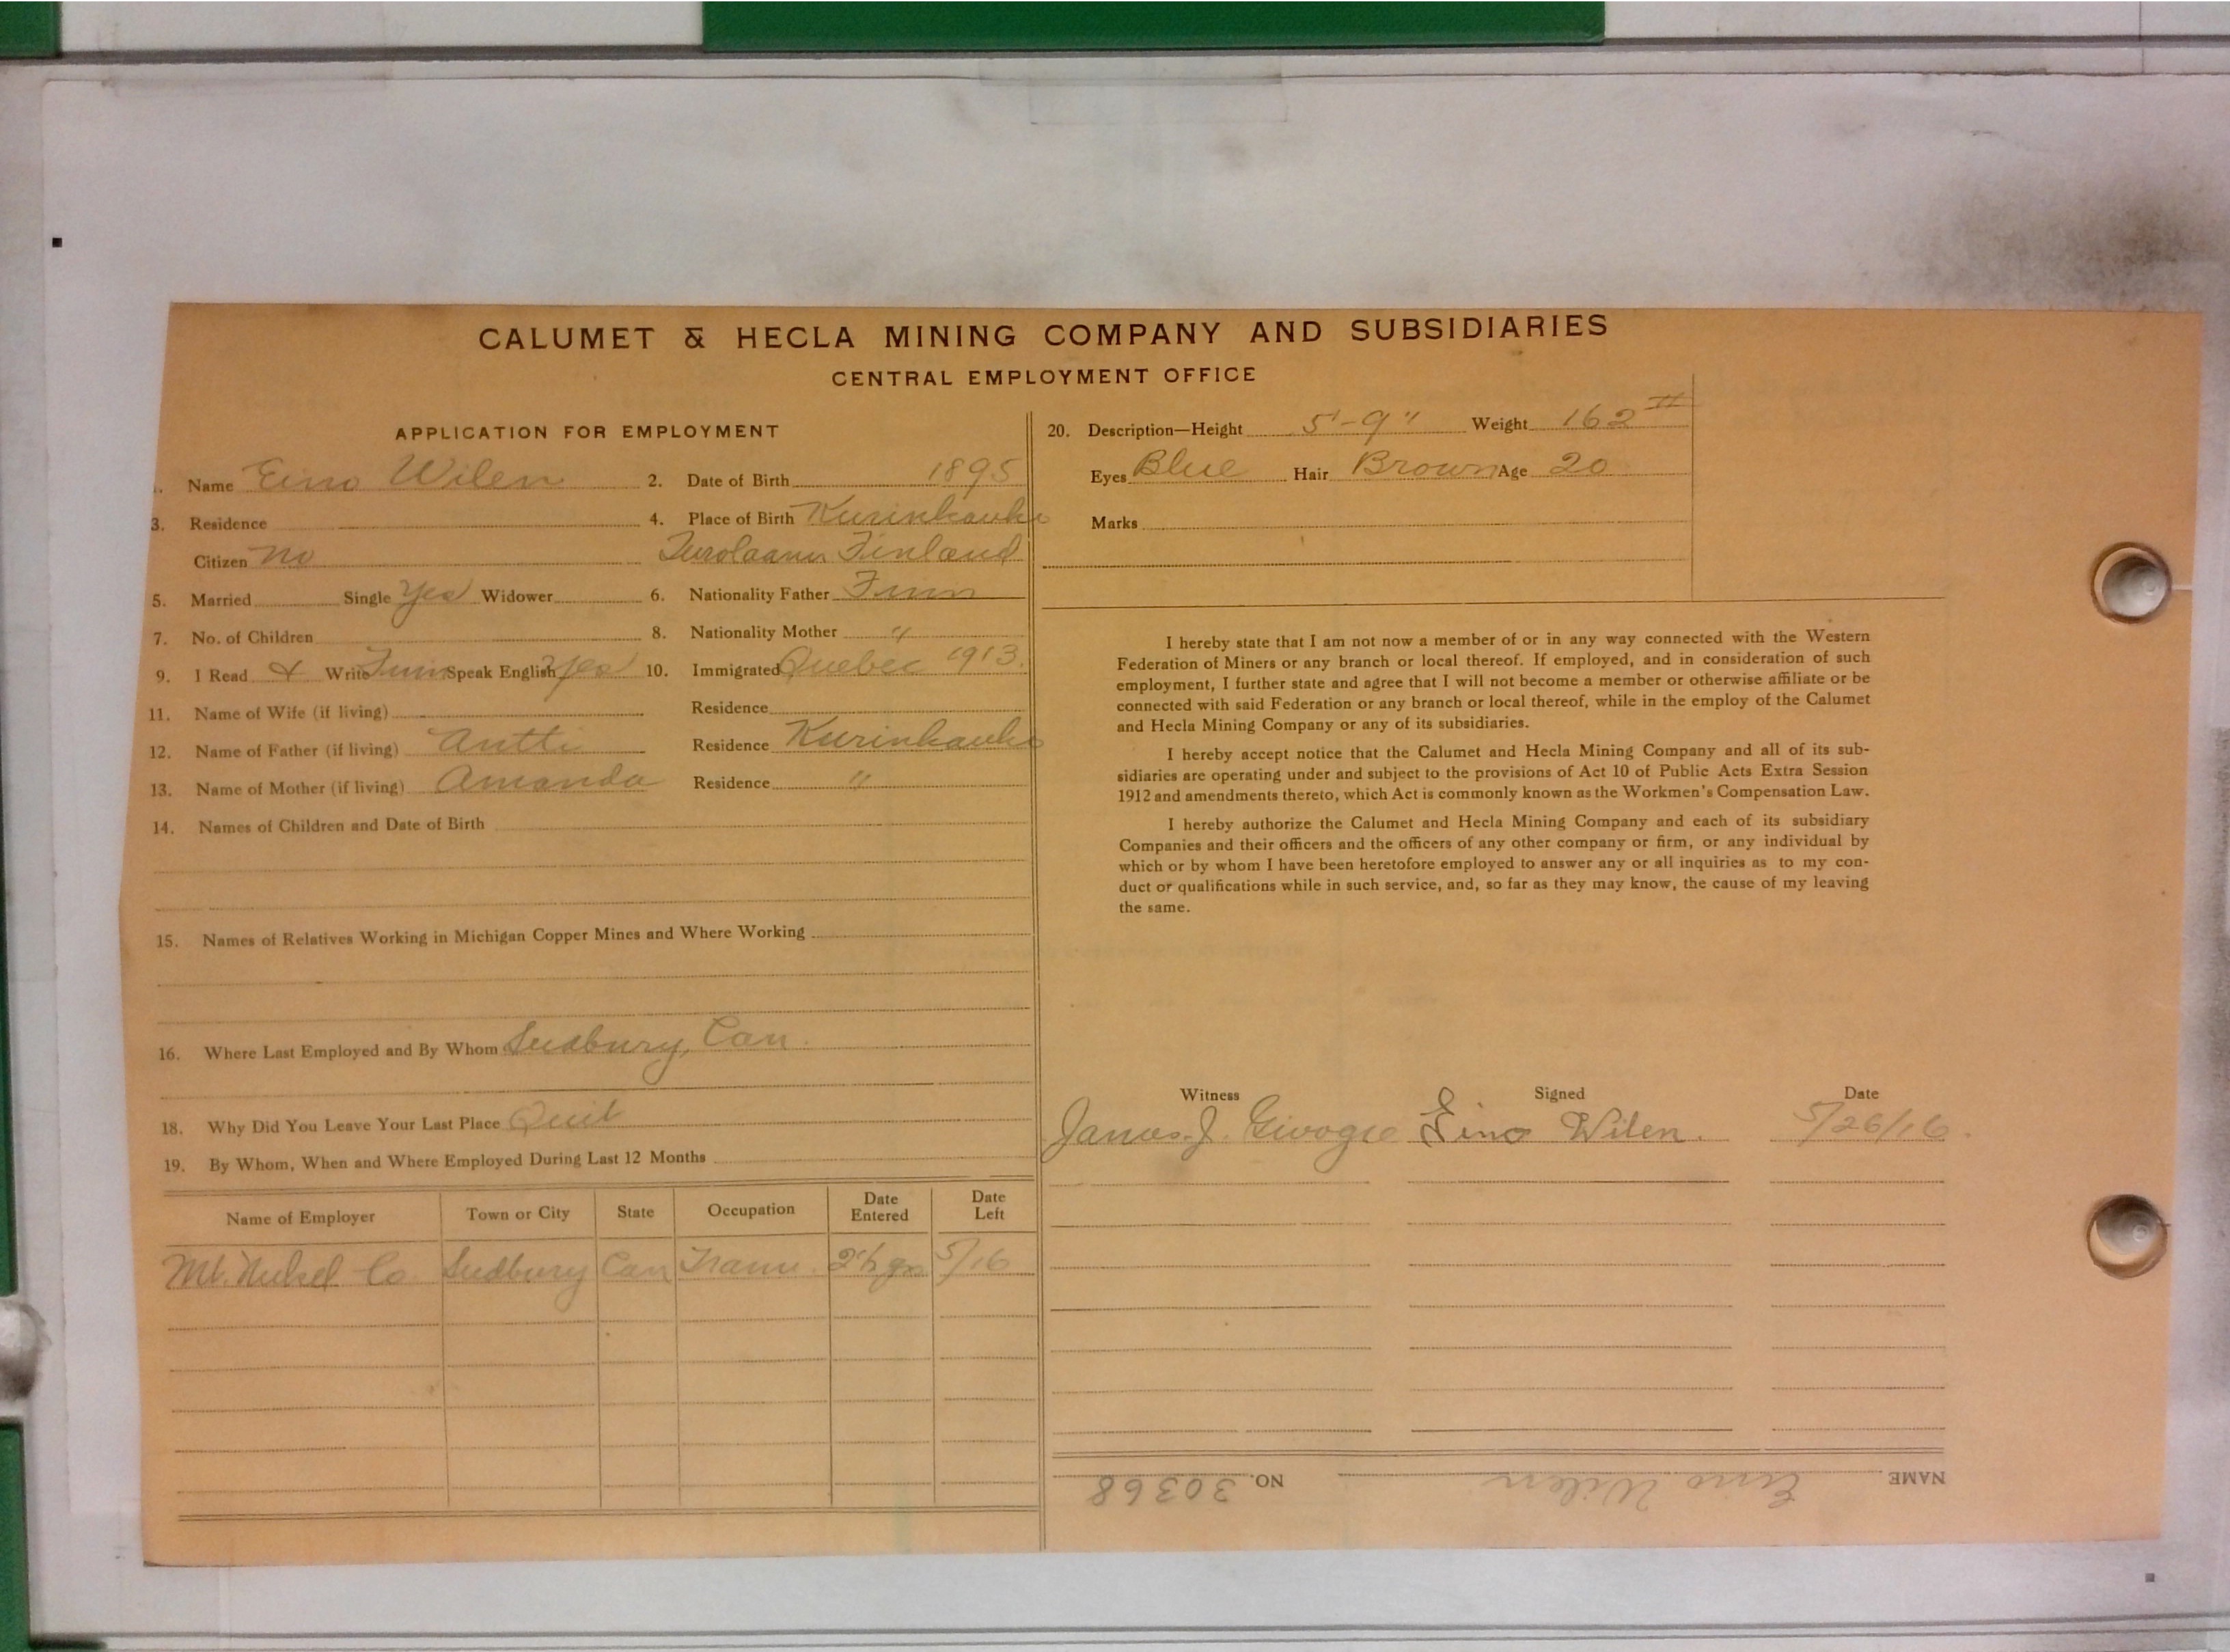 CALUMET & HECLA MINING COMPANY AND SUBSIDIARIES
CENTRAL EMPLOYMENT OFFICE
APPLICATION FOR EMPLOYMENT
Name Eino Wilen 2. Date of Birth 1895
3. Residence 4. Place of Birth Kurinhauke
Citizen no Finland
5. Married Single Yes Widower 6. Nationality Father Finn
7. No. of Children 8. Nationality Mother "
9. I Read & Write Finn Speak English Yes 10. Immigrated Quebec 1913.
11. Name of Wife (if living) Residence
12. Name of Father (if living) Antti Residence Kurinhauke
13. Name of Mother (if living) Amanda Residence "
14. Names of Children and Date of Birth
15. Names of Relatives Working in Michigan Copper Mines and Where Working
16. Where Last Employed and By Whom Sudbury, Can.
18. Why Did You Leave Your Last Place Quit
19. By Whom, When and Where Employed During Last 12 Months
Name of Employer Town or City State Occupation Date Entered Date Left
Mt. Nickel Co. Sudbury Can Tram. 5/16
20. Description—Height 5'-9" Weight 162 #
Eyes Blue Hair Brown Age 20
Marks
I hereby state that I am not now a member of or in any way connected with the Western
Federation of Miners or any branch or local thereof. If employed, and in consideration of such
employment, I further state and agree that I will not become a member or otherwise affiliate or be
connected with said Federation or any branch or local thereof, while in the employ of the Calumet
and Hecla Mining Company or any of its subsidiaries.
I hereby accept notice that the Calumet and Hecla Mining Company and all of its sub-
sidiaries are operating under and subject to the provisions of Act 10 of Public Acts Extra Session
1912 and amendments thereto, which Act is commonly known as the Workmen's Compensation Law.
I hereby authorize the Calumet and Hecla Mining Company and each of its subsidiary
Companies and their officers and the officers of any other company or firm, or any individual by
which or by whom I have been heretofore employed to answer any or all inquiries as to my con-
duct or qualifications while in such service, and, so far as they may know, the cause of my leaving
the same.
Witness Signed Date
James J. Eino Wilen. 5/26/16.
NAME Eino Wilen NO. 30368